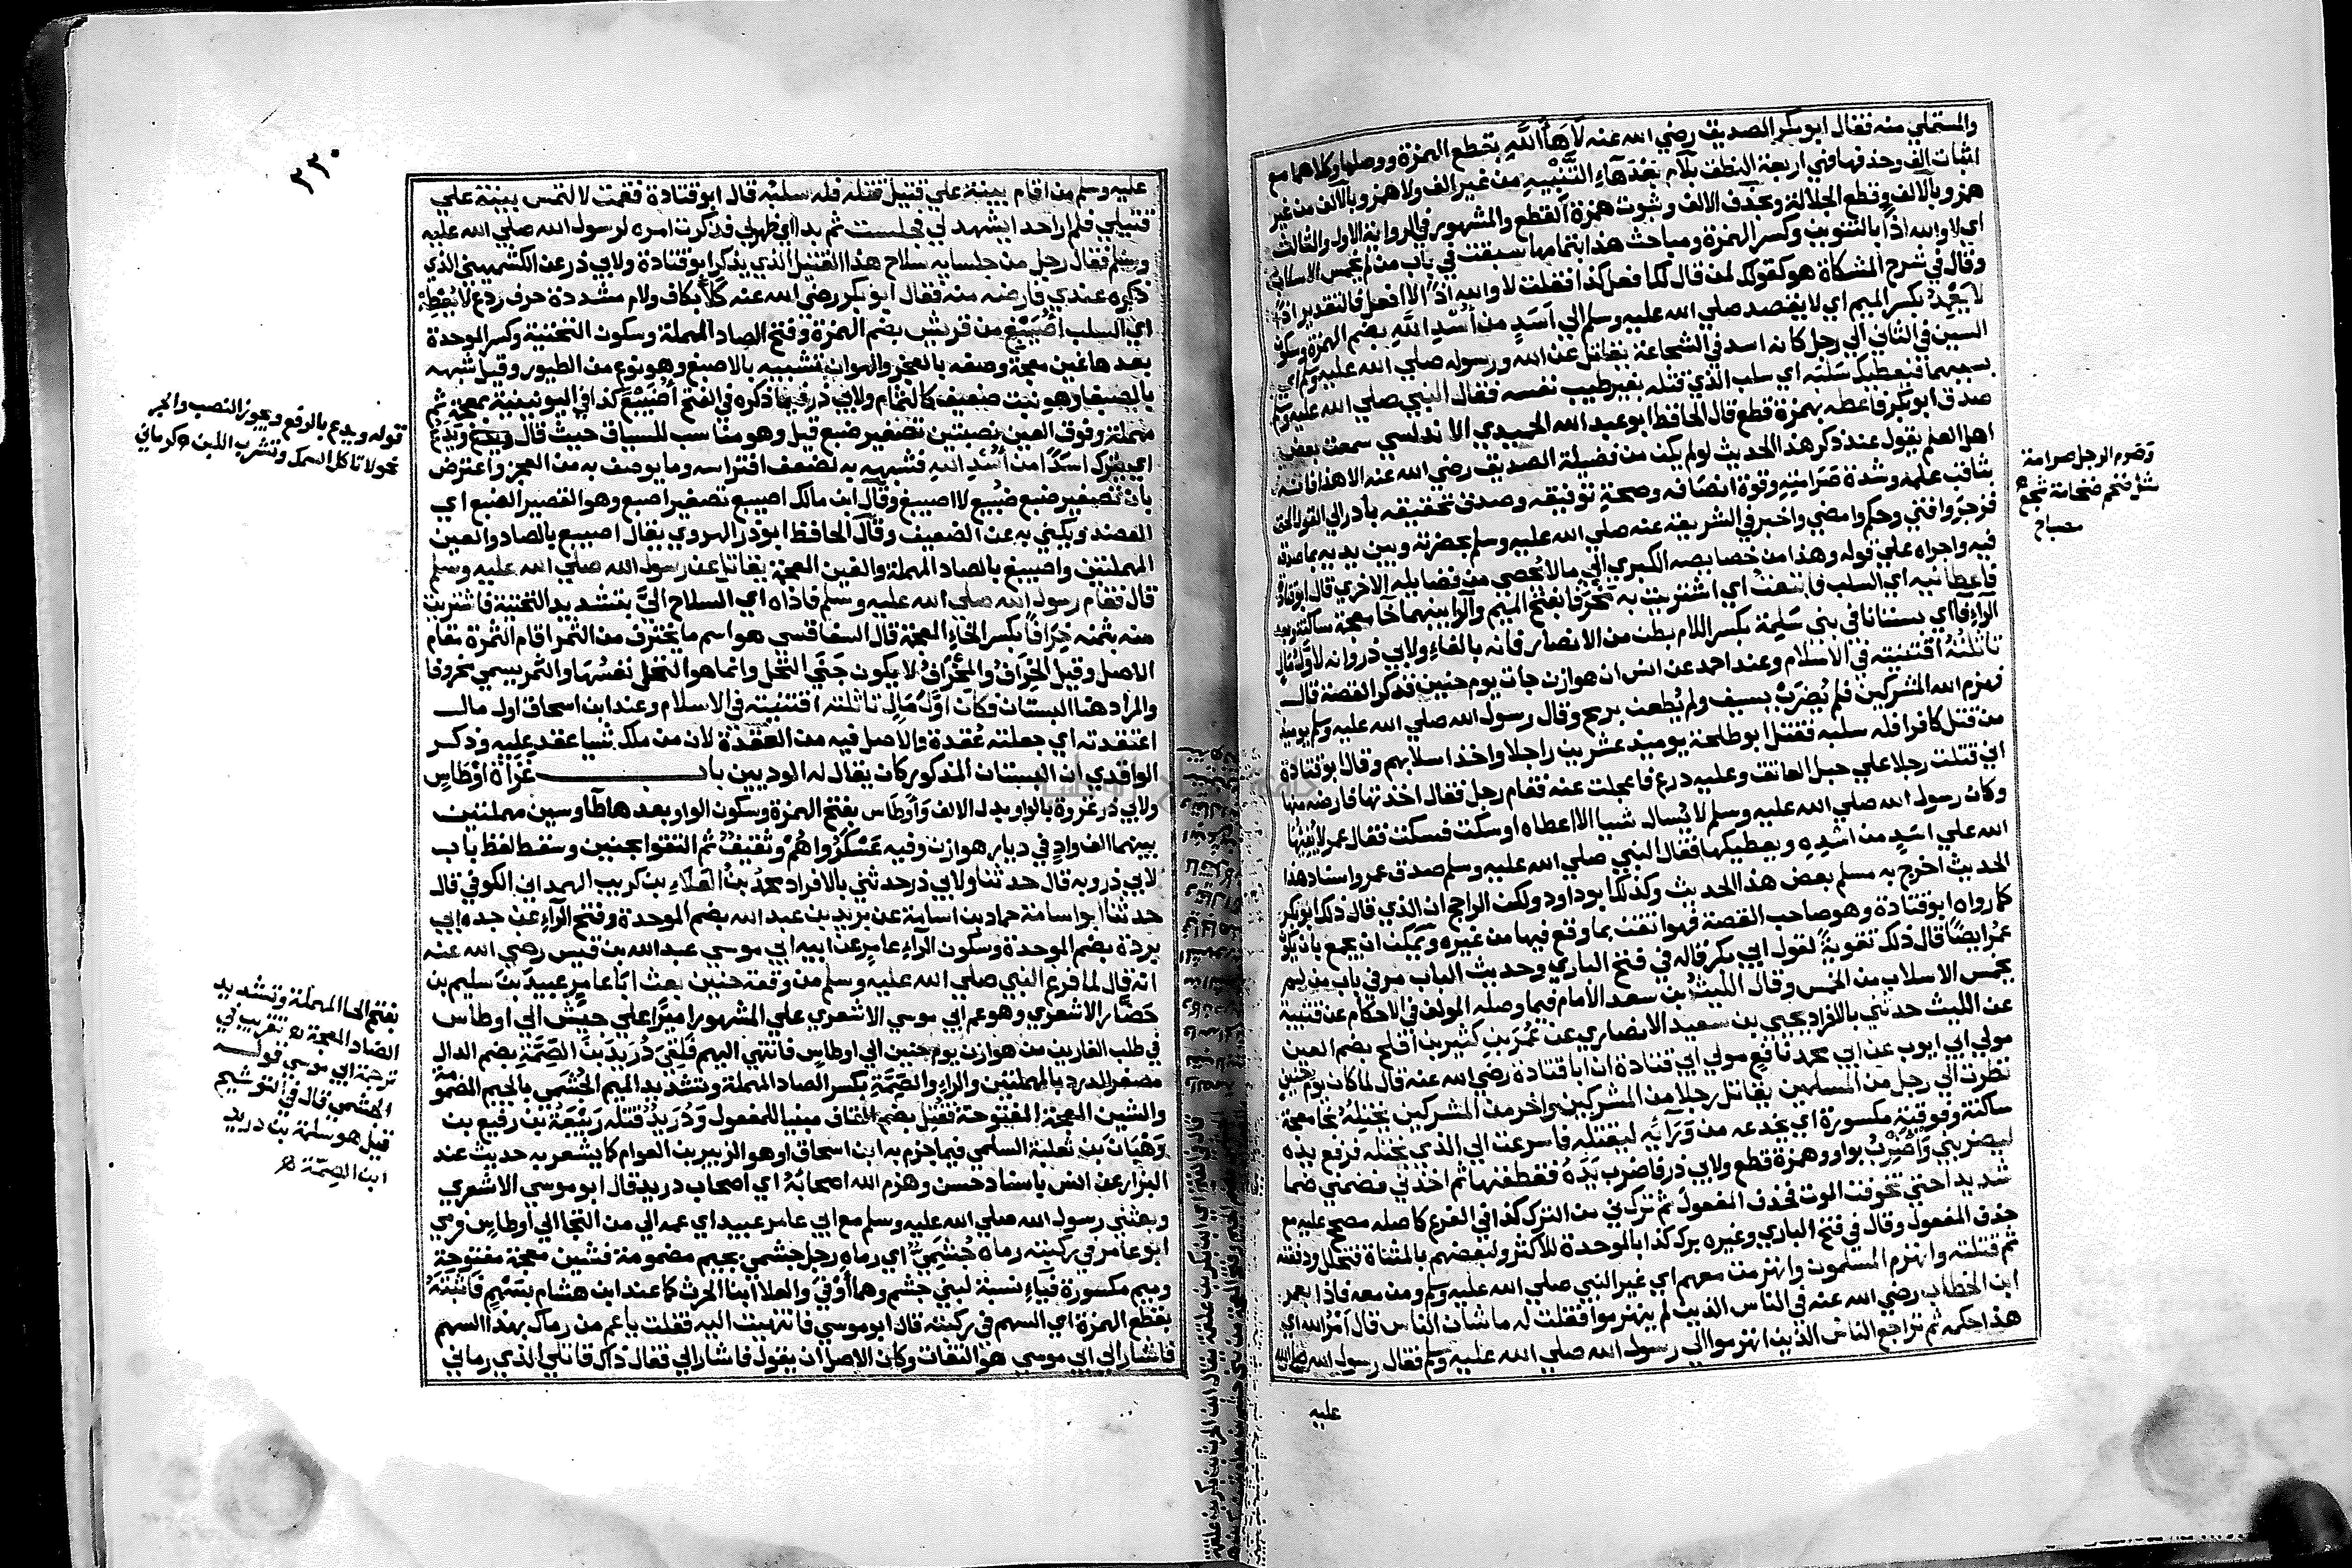 والمستملي منه فقال ابو بكر الصديق رضي الله عنه لَاهَاْ اللَّهِ بقطع الهمزة ووصلها وكلاهما مع
اثبات الف وحذفها فهي اربعة النطق بلام بَعْدَهَاءِ التَّنْبِيهِ من غير الف ولا همز وبالالف من غير
همز وبالالف وقطع الجلالة وبحذف الالف وثبوت همزة القطع والمشهور في الرواية الاول والثالث
اي لا والله اذًا بالتنوين وكسر الهمزة ومباحث هذا بتمامها سبقت في باب من لم يخمس الاسلاب
وقال في شرح المشكاة هو كقولك لمن قال لك افعل كذا فقلت لا والله اذًا لا افعل فالتقدير اذًا
لا يَعْمِدُ بكسر الميم اي لا يقصد صلي الله عليه وسلم الي اَسَدٍ من أُسْدِ اللَّهِ بضم الهمزة وسكون
السين في الثاني الي رجل كانه اسد في الشجاعة يقاتل عن الله ورسوله صلي الله عليه وسلم اي
بسببهما فيعطيك سَلَبَه اي سلب الذي قتله بغير طيب نفسه فقال النبي صلي الله عليه وسلم
صدق ابو بكر فاعطه بهمزة قطع قال الحافظ ابو عبد الله الحميدي الاندلسي سمعت بعض
اهل العلم يقول عند ذكر هذا الحديث لو لم يكن من فضيلة الصديق رضي الله عنه الا هذا فانه
بثاقب علمه وشدة صرامته وقوة انصافه وصحة توفيقه وصدق تحقيقه بادر الي القول الحق
فزجر وافتي وحكم وامضي واخبر في الشريعة عنه صلي الله عليه وسلم بحضرته وبين يديه بما صدقه
فيه واجراه علي قوله وهذا من خصايصه الكبري الي ما لا يحصي من فضايله الاخري قال ابو قتادة
فاعطانيه اي السلب فابتعت اي اشتريت به مَخْرَفًا بفتح الميم والرا بينهما خا معجمة ساكنة وبعد
الراء فا اي بستانا في بني سَلِمَة بكسر اللام بطن من الانصار فانه بالفاء ولابي ذر وانه لاوَّل مال
تاثلته اقتنيته في الاسلام وعند احمد عن انس ان هوازن جات يوم حنين فذكر القصة قال
فهزم الله المشركين فلم يُضرَبْ بسيف ولم يُطعن برمح وقال رسول الله صلي الله عليه وسلم يوميذ
من قتل كافرا فله سلبه فقتل ابو طلحة يوميذ عشرين راجلا واخذ اسلابهم وقال ابو قتادة
اني قتلت رجلا علي حبل العاتق وعليه درع فاعجلت عنه فقام رجل فقال اخذتها فارضه منها
وكان رسول الله صلي الله عليه وسلم لا يُسال شيا الا اعطاه او سكت فسكت فقال عمر لا يُفيئها
الله علي اسدٍ من اُسْدِهِ ويعطيكها فقال النبي صلي الله عليه وسلم صدق عمر واسناد هذا
الحديث اخرج به مسلم بعض هذا الحديث وكذلك ابو داود ولكن الراجح ان الذي قال ذلك ابو بكر
كما رواه ابو قتادة وهو صاحب القصة فهو اتقن بما وقع فيها من غيره ويمكن ان يجمع بان يكون
عمر ايضًا قال ذلك تقويةً لقول ابي بكر قاله في فتح الباري وحديث الباب مر في باب من لم
يخمس الاسلاب من الخمس وقال الليثُ بن سعد الامام فيما وصله المولف في الاحكام عن قتيبة
عن الليث حدثني بالافراد يحيي بن سعيد الانصاري عن عُمَر بنِ كثير بن افلح بضم العين
مولي ابي ايوب عن ابي محمد نافع مولي ابي قتادة ان ابا قتادة رضي الله عنه قال لما كان يوم حنين
نظرت الي رجل من المسلمين يقاتل رجلا من المشركين واخر من المشركين يَخْتِلُهُ بخا معجمة
ساكنة وفوقية مكسورة اي يخدعه من وَرَايِه ليقتله فاسرعت الي الذي يختله فرفع يده
ليضربني وَأَضْرِبُ بواو وهمزة قطع ولابي ذر فاضرب يَدَهُ فقطعتها ثم اخذني فضمني ضما
شديدا حتي تخوفت الموت فحذف المفعول ثم ترك ني من الترك كذا في الفرع كاصله مصحح عليه مع
حذف المفعول وقال في فتح الباري وغيره برك كذا بالموحدة للاكثر ولبعضهم بالمثناة فتحلل ودفعته
ثم قتلته وانهزم المسلمون وانهزمت معهم اي غير النبي صلي الله عليه وسلم ومن معه فاذا بعمر
ابن الخطاب رضي الله عنه في الناس الذين لم ينهزموا فقلت له ما شان الناس قال امْرُ الله اي
هذا حكمه ثم تراجع الناس الذين انهزموا الي رسول الله صلي الله عليه وسلم فقال رسول الله صلي الله
عليه
وصَرُم الرجل صرامة
مثل ضخم ضخامة شجع
مصباح
٢٢٠
عليه وسلم من اقام بينة علي قتيل قتله فله سلبُه قال ابو قتادة فقمت لالتمس بينة علي
قتيلي فلم ار احدا يشهد لي فجلست ثم بدا اي ظهر لي فذكرت امره لرسول الله صلي الله عليه
وسلم فقال رجل من جلسايه سلاح هذا القتيل الذي يذكر ابو قتادة ولابي ذر عن الكشميهني الذي
ذكره عندي فارضه منه فقال ابو بكر رضي الله عنه كَلَّا بكاف ولام مشددة حرف ردع لا يُعْطِهِ
اي السلب اُصَيْبِغ من قريش بضم الهمزة وفتح الصاد المهملة وسكون التحتية وكسر الموحدة
بعدها غين معجمة وصفه بالعجز والهوان تشبيه بالاصبغ وهو نوع من الطيور وقيل شبهه
بالصبغا وهو نبت ضعيف كالثمام ولابي ذر فيما ذكره في الفتح اُضَيْبِعَ كذا في اليونينية بمعجمة ثم
مهملة وفوق العين نصبتين تصغير ضبع قيل وهو مناسب للسياق حيث قال ويدع
اي يترك اسدًا من اُسْدِ الله فشبهه به لضعف افتراسه وما يوصف به من العجز واعترض
بان تصغير ضبع ضُبَيع لا اضيبع وقال ابن مالك اضيبع تصغير اضبع وهو القصير الضبع اي
العضد ويكني به عن الضعيف وقال الحافظ ابو ذر الهروي يقال اصيبع بالصاد والعين
المهملتين واصيبغ بالصاد المهملة والغين المعجمة يقاتل عن رسول الله صلي الله عليه وسلم
قال فقام رسول الله صلي الله عليه وسلم فاداه اي السلاح اليَّ بتشديد التحتية فاشتريت
منه بثمنه خِرَافًا بكسر الخاء المعجمة قال السفاقسي هو اسم ما يخترف من الثمر اقام الثمرة مقام
الاصل وقيل الخِرَافُ والمَخْرَفُ لا يكون جَنَي النخل وانما هو النخل نفسُها والثمر يسمي مخروفا
والمراد هنا البستان فكان اوَّلَ مَالٍ تاثلته اقتنيته في الاسلام وعند ابن اسحاق اول مال
اعتقدته اي جعلته عُقدة والاصل فيه من العقدة لان من ملك شيا عقد عليه وذكر
الواقدي ان البستان المذكور كان يقال له الوديين باب غَزَاةِ اوْطَاسٍ
ولابي ذر غزوة بالواو بدل الالف وَاَوْطَاس بفتح الهمزة وسكون الواو بعدها طا وسين مهملتين
بينهما الف وادٍ في ديار هوازن وفيه عَسْكَرُوا هُمْ وثَقِيفُ ثم التقوا بحنين وسقط لفظ باب
لابي ذر وبه قال حدثنا ولابي ذر حدثني بالافراد محمد بن العَلَاءِ بن كريب الهمداني الكوفي قال
حدثنا ابو اسامة حماد بن اسامة عن بريد بن عبد الله بضم الموحدة وفتح الراء عن جده ابي
بردة بضم الموحدة وسكون الراء عامر عن ابيه ابي موسي عبد الله بن قيس رضي الله عنه
انه قال لما فرغ النبي صلي الله عليه وسلم من وقعة حنين بعث اَبَا عامِرٍ عبيد بن سليم بن
حَضَّار الاشعري وهو عم ابي موسي الاشعري علي المشهور اميرًا علي جيش الي اوطاس
في طلب الفارين من هوازن يوم حنين الي اوطاس فانتهي اليهم فلقي دُرَيْد بنَ الصِّمَّةِ بضم الدال
مصغر الدرد بالمهملتين والراء والصِّمَّةِ بكسر الصاد المهملة وتشديد الميم الجُشَمي بالجيم المضمومة
والشين المعجمة المفتوحة فقتل بضم القاف مبنيا للمفعول دُرَيْدُ قتله رَبِيْعَة بن رفيع بن
وَهْبَان بن ثعلبة السلمي فيما جزم به ابن اسحاق او هو الزبير بن العوام كما يشعر به حديث عند
البزار عن انس باسناد حسن وهزم الله اصحابَهُ اي اصحاب دريد قال ابو موسي الاشعري
وبعثني رسول الله صلي الله عليه وسلم مع ابي عامر عبيد اي عمه الي من التجا الي اوطاس فرمي
ابو عامر في ركبته رماه جُشَمِيٌّ اي رماه رجل جشمي بجيم مضمومة فشين معجمة مفتوحة
وميم مكسورة فياء نسبة لبني جشم وهما اَوْفَيُ والعلا ابنا الحرث كما عند ابن هشام بسَهْمٍ فاثبَتَهُ
بقطع الهمزة اي السهم في ركبته قال ابو موسي فانتهيت اليه فقلت يا عم من رماك بهذا السهم
فاشار الي ابي موسي هو التفات وكان الاصل ان يقول فاشار الي فقال ذاك قاتلي الذي رماني
قوله ويدع بالرفع ويجوز النصب والجر
نحو لا تاكل السمك وتشرب اللبن كرماني
بفتح الحا المهملة وتشديد
الضاد المعجمة تقريب في
ترجمة ابي موسي قوله
الجشمي قال في التوشيح
قيل هو سلمة بن دريد
ابن الصِمّة